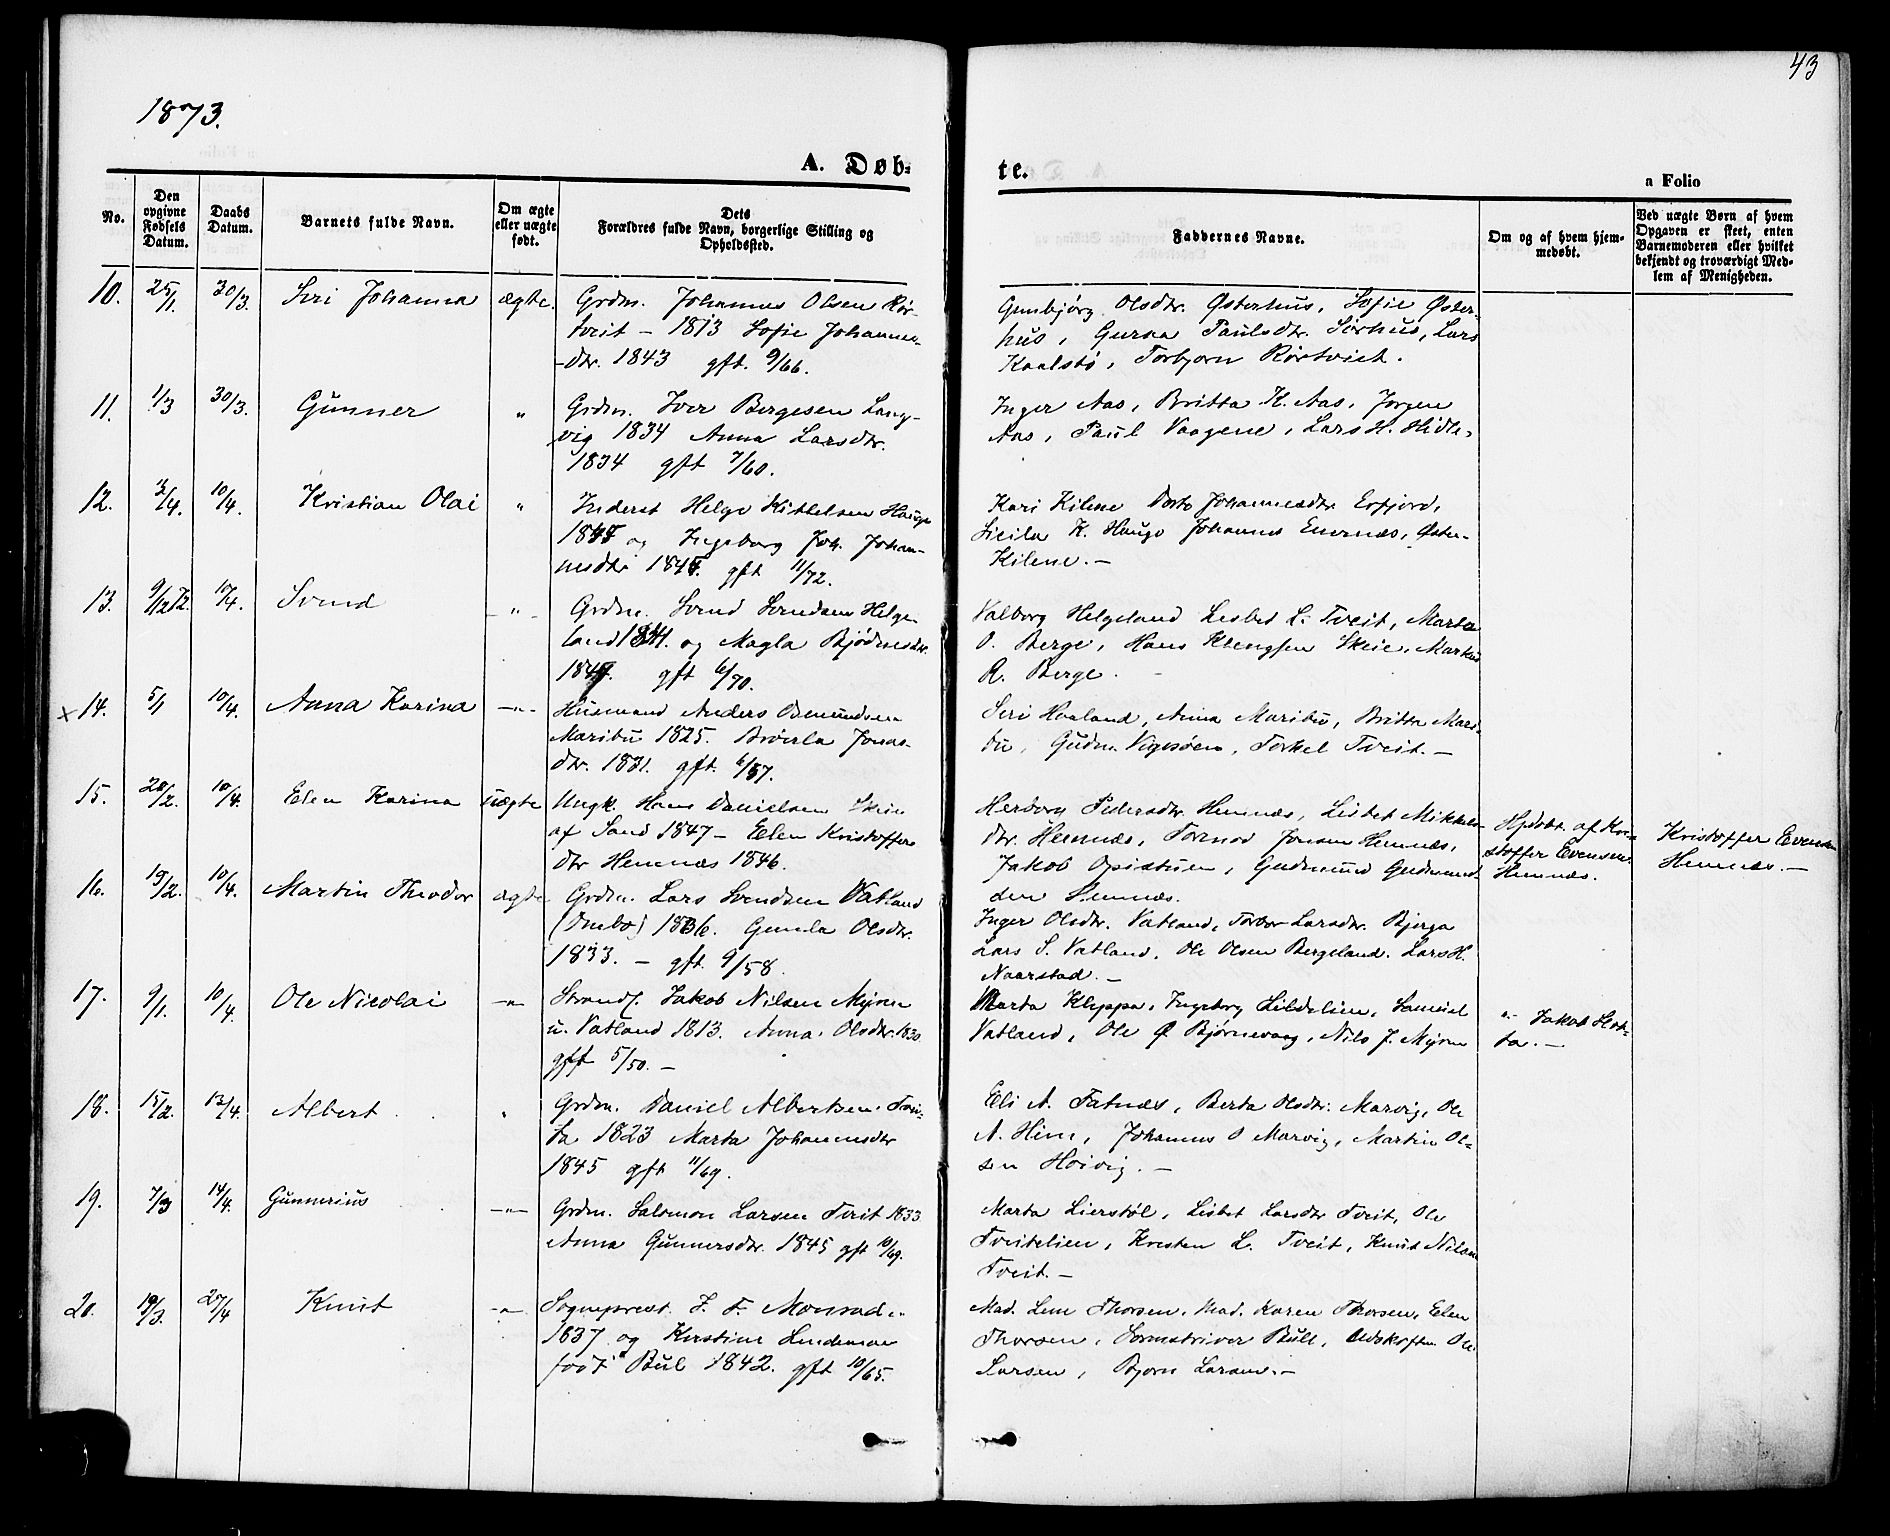 43
1873.
A. Døb-
te.
a Folio
No.
Den opgivne Fødsels Datum.
Daabs Datum.
Barnets fulde Navn.
Om ægte eller uægte født.
Dets Forældres fulde Navn, borgerlige Stilling og Opholdssted.
Faddernes Navne.
Om og af hvem hjemmedøbt.
Ved uægte Børn af hvem Opgaven er skeet, enten Barnemoderen eller hvilket bekjendt og troværdigt Medlem af Menigheden.
10. 25/1. 30/3. Siri Johanna ægte. Grdm. Johannes Olsen Rør-
tveit – 1813 Sofie Johannes-
-dtr. 1843 gft. 9/66.
Gunbjørg Olsdtr. Østerhus, Sofie Øster-
hus, Gurna Paulsdtr. Sørhus, Lars
Kaalstø, Torbjorn Rörtveit.
11. 1/3 30/3. Gunner " Grdm. Iver Bergesen Lang-
vig 1834 Anna Larsdtr.
1834 gft 7/60.
Inger Aas, Britta K. Aas, Jorgen
Aas, Paul Vaagene, Lars H. Hidle.
12. 2/4. 10/4. Kristian Olai " Inderst Helge Kittelsen Hauge
og Ingeborg Joh. Johan-
nesdtr gft 11/72.
Kari Kilene Dorte Johannesdtr Erfjord,
Sicila K. Hauge Johannes Enernæs, Østen
Kilene. –
13. 9/12 72. 10/4. Svend – " Grdm. Svend Svendsen Helge-
land og Magla Bjødnesdtr.
gft 6/70.
Valborg Helgeland Lisbet L. Tveit, Marta
O. Berge, Hans Skeie, Markus
R. Berge.
x 14. 5/1 10/4. Anna Karina –"– Husmand Anders Osmundsen
Maribu 1825. Jonas-
dtr. 1831. gft. 6/57.
Siri Haaland, Anna Maribu, Britta Mari-
bu, Gudm. Vigesøen, Torkel Tveit. –
15. 20/2. 10/4. Elen Karina uægte Ungk. Hans Danielsen Skeie
af Sand 1847 – Elen Kristoffers
dtr Hemnæs 1846.
Herborg Pedersdtr Hemnæs, Lisbet Mikkels-
dtr. Hemnæs, Tormod Jonsen Hemnæs,
Jakob Opistuen, Gudmund Gudmund-
sen Hemnæs.
Hjdøbt. af Kri-
stoffer Evensen
Hemnæs.
Kristoffer Evensen
Hemnæs. –
16. 19/2. 10/4. Martin Theodor ægte Grdm. Lars Svendsen Vatland
(Indbo) 1836. Gunla Olsdtr.
1833. – gft. 9/58.
Inger Olsdtr. Vatland, Torbor Larsdtr. Bjerga
Lars S. Vatland, Ole Olsen Bergeland. Lars H.
Naarstad. –
17. 9/1. 10/4. Ole Nicolai –"– Strands. Jakob Nilsen Myren
u. Vatland 1813. Anna Olsdtr. 1830.
gft 5/50. –
Marta Kleppa, Ingeborg Lildelien, Samuel
Vatland, Ole Ø Bjørnevaag, Nils J. Myren
"– Jakob Slet-
ta. –
18. 15/2. 13/4. Albert " Grdm. Daniel Albertsen
1823 Marta Johannesdtr
1845 gft 11/69.
Eli A. Fatnæs, Berta Olsdtr. Marvig, Ole
A. Hiim, Johannes O Marvig, Martin Ol-
sen Hoivig. –
19. 7/3 14/4. Gunnerius –"– Grdm. Salomon Larsen Tveit 1833
Anna Gunnersdtr. 1845 gft 10/69.
Marta Lierstøl, Lisbet Larsdtr Tveit, Ole
Tveitelien, Kresten L. Tveit, Knut Nilsen
Tveit. –
20. 19/3. 27/4 Knut –"– Sogneprest. J. F. Monrad
1837 og Kirstine Lindeman
født Bul 1842. gft 10/65.
Mad. Lene Thorsen, Mad. Karen Thorsen, Elen
Thorsen, Sorenskriver Bull, Ole
Larsen, Bjorn Larsen. –